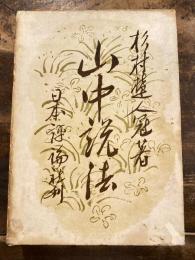 杉村楚人冠著
山中説法
日本評論社刊